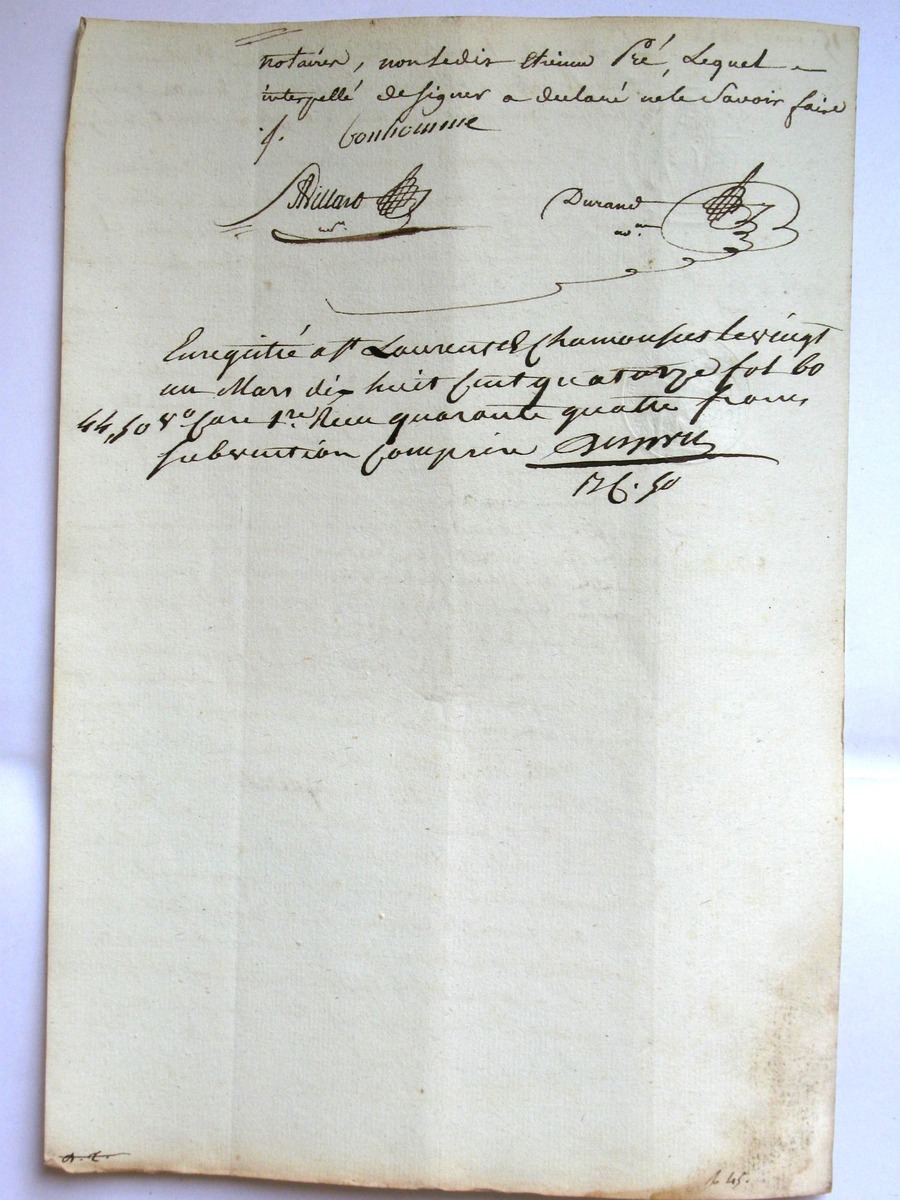 notaires, non ledit Etienne Pré, Lequel
interpellé de signer a declaré ne le Savoir faire
f. bonhomme
Villard
Durand
nre
Enregistré a St Laurent de Chamousset le vingt
un Mars dix huit Cent quatorze fol 60
44,50 Vo Case 1re Recu quarante quatre francs
subvention Comprise